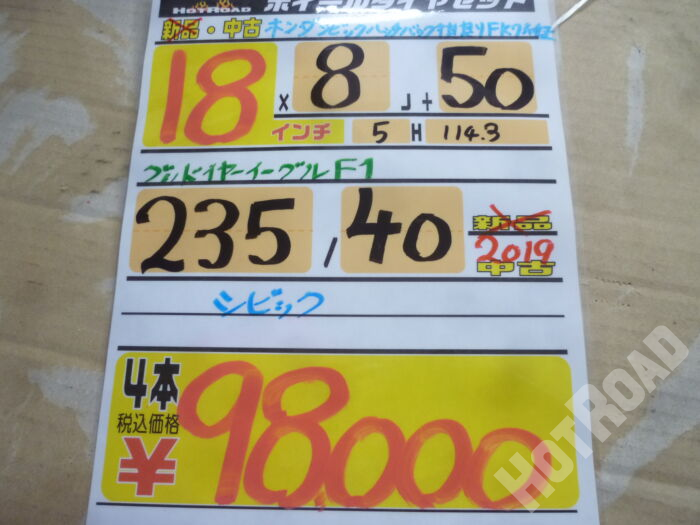 HOTROAD ホイールタイヤセット
新品・中古 ホンダシビックハッチバック
18 x 8 J + 50
インチ 5 H 114.3
グッドイヤーイーグルF1
235 / 40 新品
2019
中古
シビック
4本
税込価格
¥98000
HOTROAD